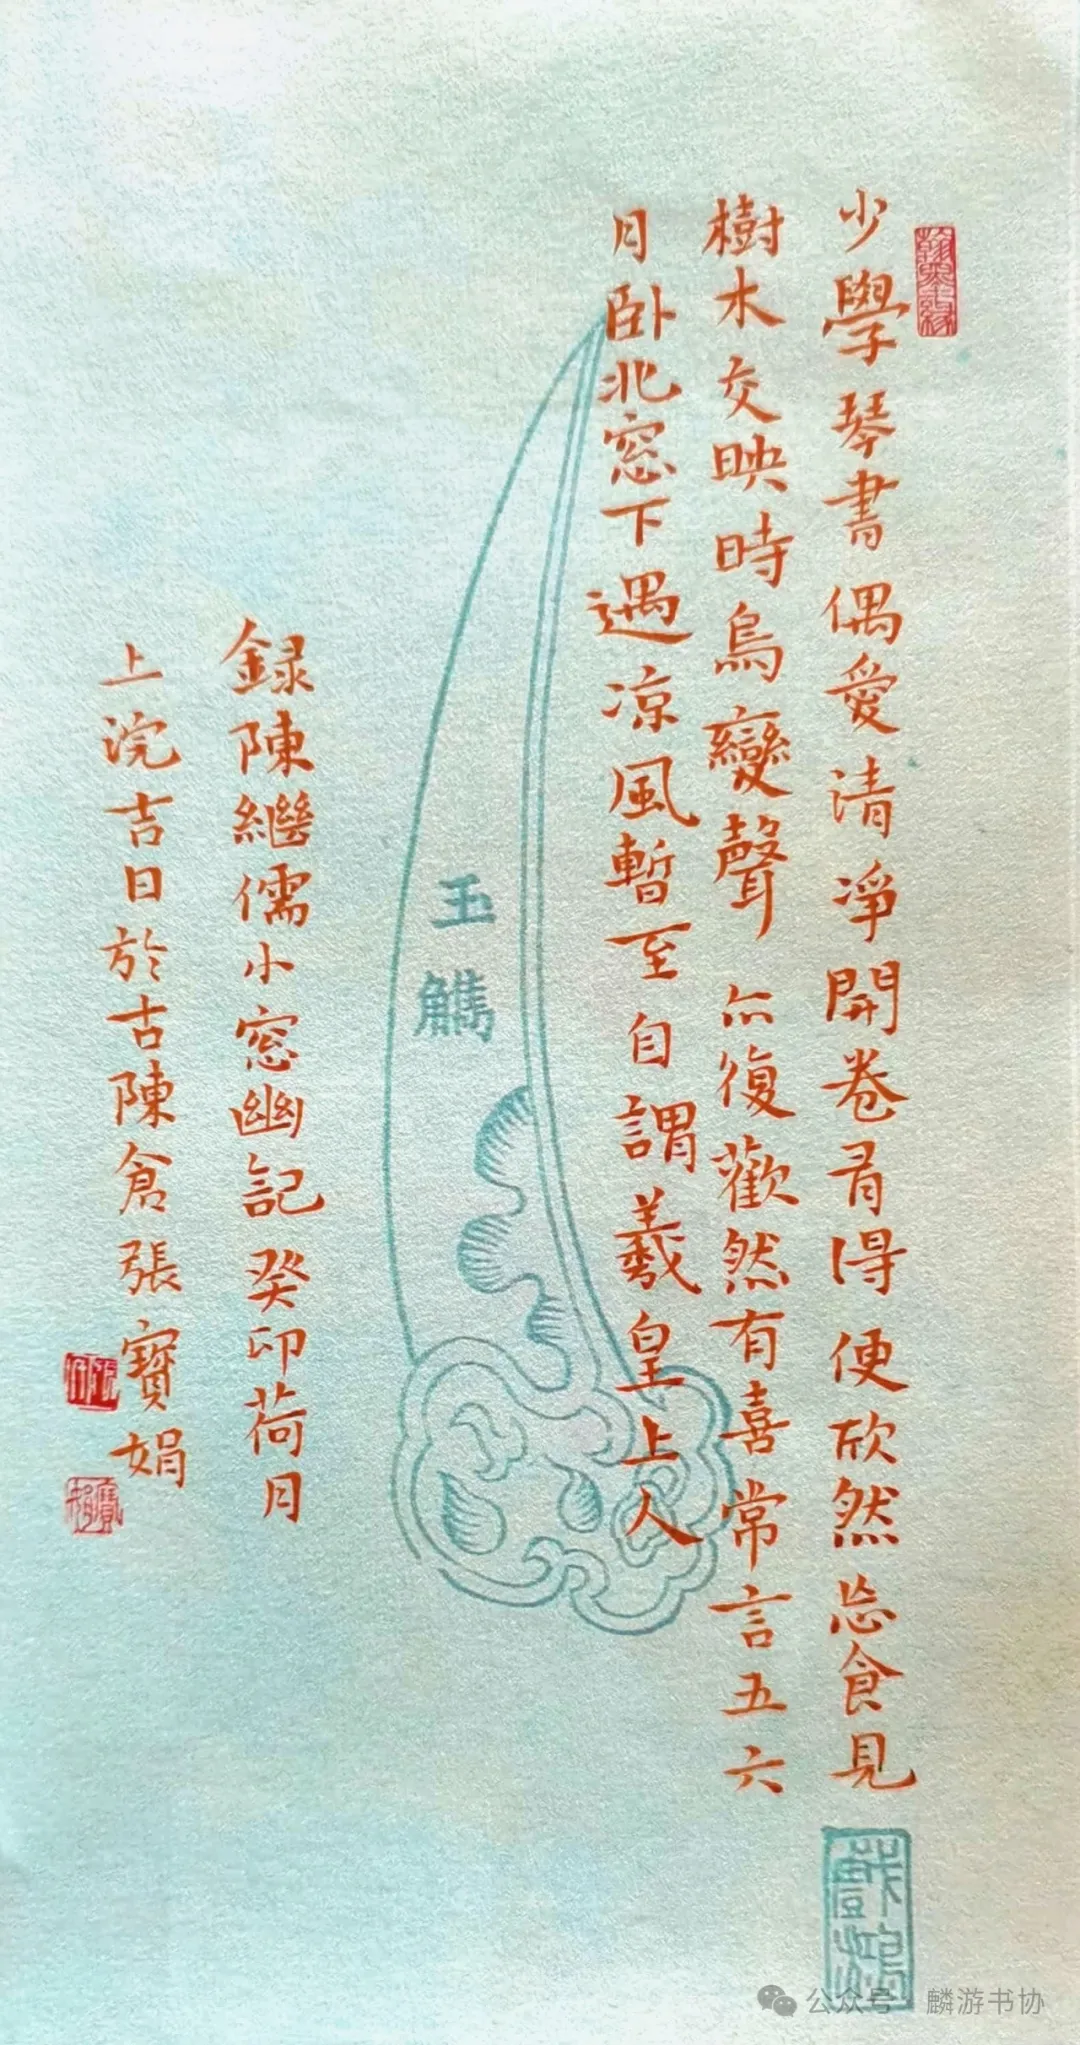 少學琴書偶愛清淨開卷有得便欣然忘食見
樹木交映時鳥變聲亦復歡然有喜常言五六
月卧北窓下遇凉風暫至自謂羲皇上人
錄陳繼儒小窓幽記癸卯荷月
上浣吉日於古陳倉張寶娟
玉觿
翰墨緣
寶娟
公众号 麟游书协